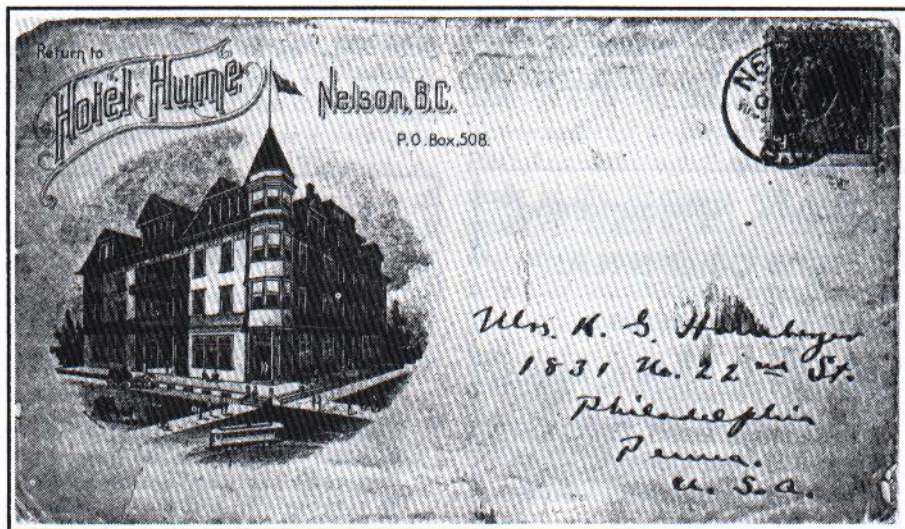 Return to
Hotel Hume
Nelson, B.C.
P.O. Box, 508.
Mrs. K. G.
1831 No. 22nd St.
Philadelphia
Penna.
U.S.A.